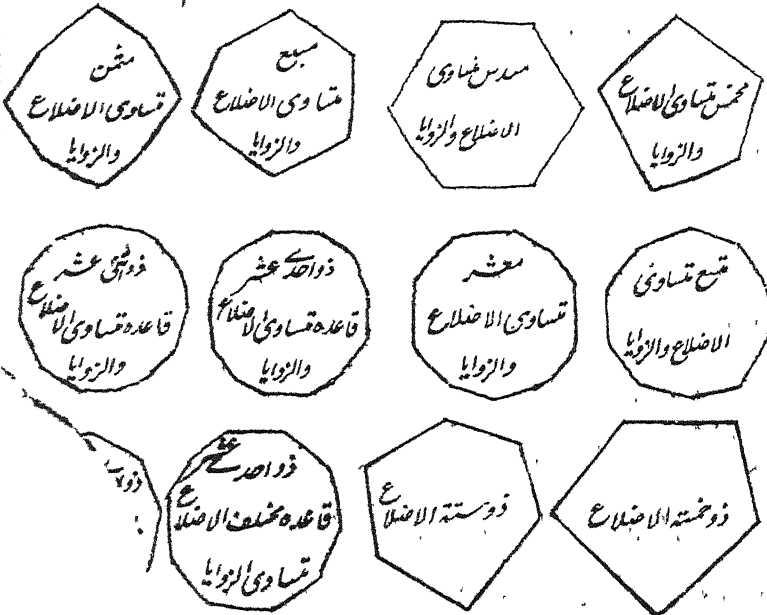 مخمس متساوی الاضلاع
والزوایا
مسدس متساوی
الاضلاع والزوایا
مسبع
متساوی الاضلاع
والزوایا
مثمن
متساوی الاضلاع
والزوایا
متسع متساوی
الاضلاع والزوایا
معشر
متساوی الاضلاع
والزوایا
ذو احدے عشر
قاعده متساوی الاضلاع
والزوایا
ذو اثنی عشر
قاعده متساوی الاضلاع
والزوایا
ذو خمسته الاضلاع
ذو سته الاضلاع
ذو احدے عشر
قاعده مختلف الاضلاع
متساوی الزوایا